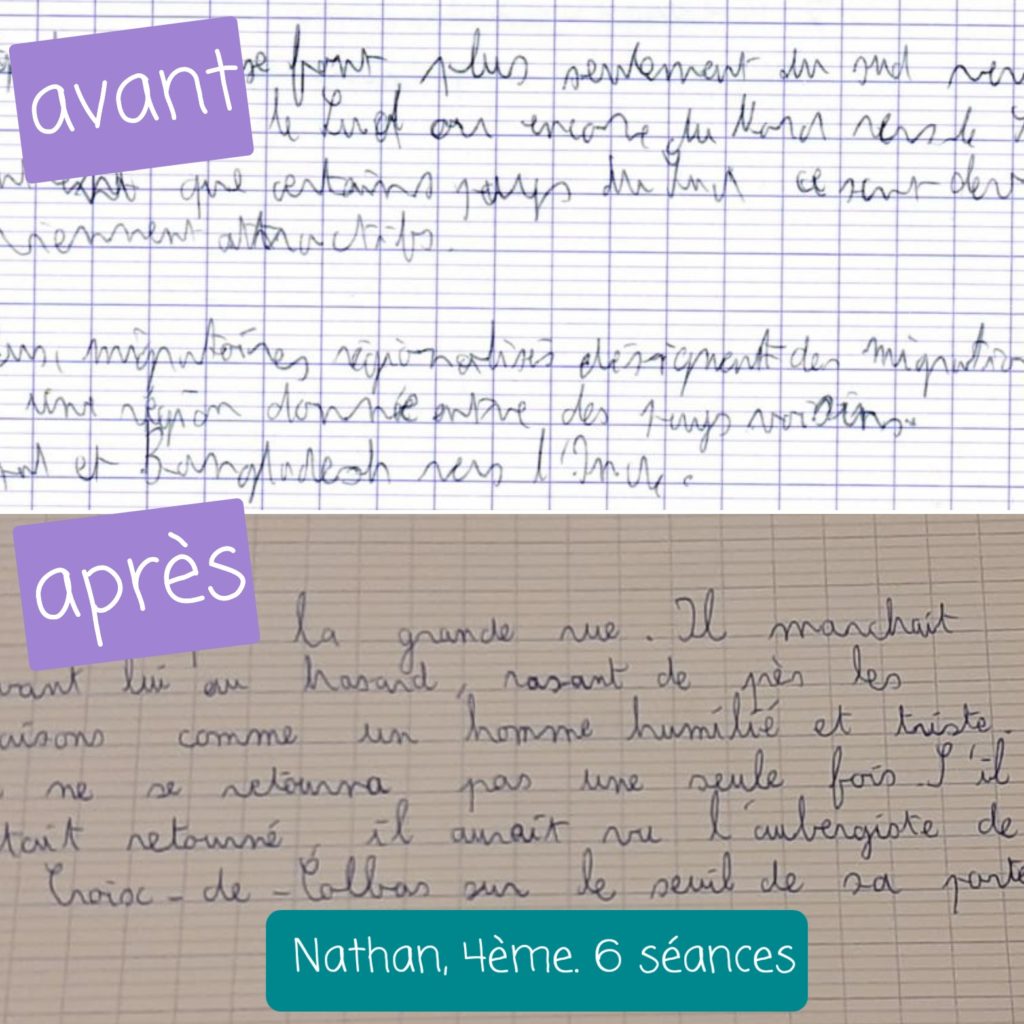 avant
se font plus seulement du sud vers
le Sud ou encore du Nord vers le
que certains pays du Sud ce sont
viennent attractifs.
migratoires régionalisés désignent des migration
une région donnée entre des pays voisins.
et Bangladesh vers l'Inde.
après
la grande rue. Il marchait
vant lui au hasard, rasant de près les
aisons comme un homme humilié et triste.
ne se retourna pas une seule fois. S'il
tait retourné, il aurait vu l'aubergiste de
Croix-de-Colbas sur le seuil de sa porte
Nathan, 4ème. 6 séances